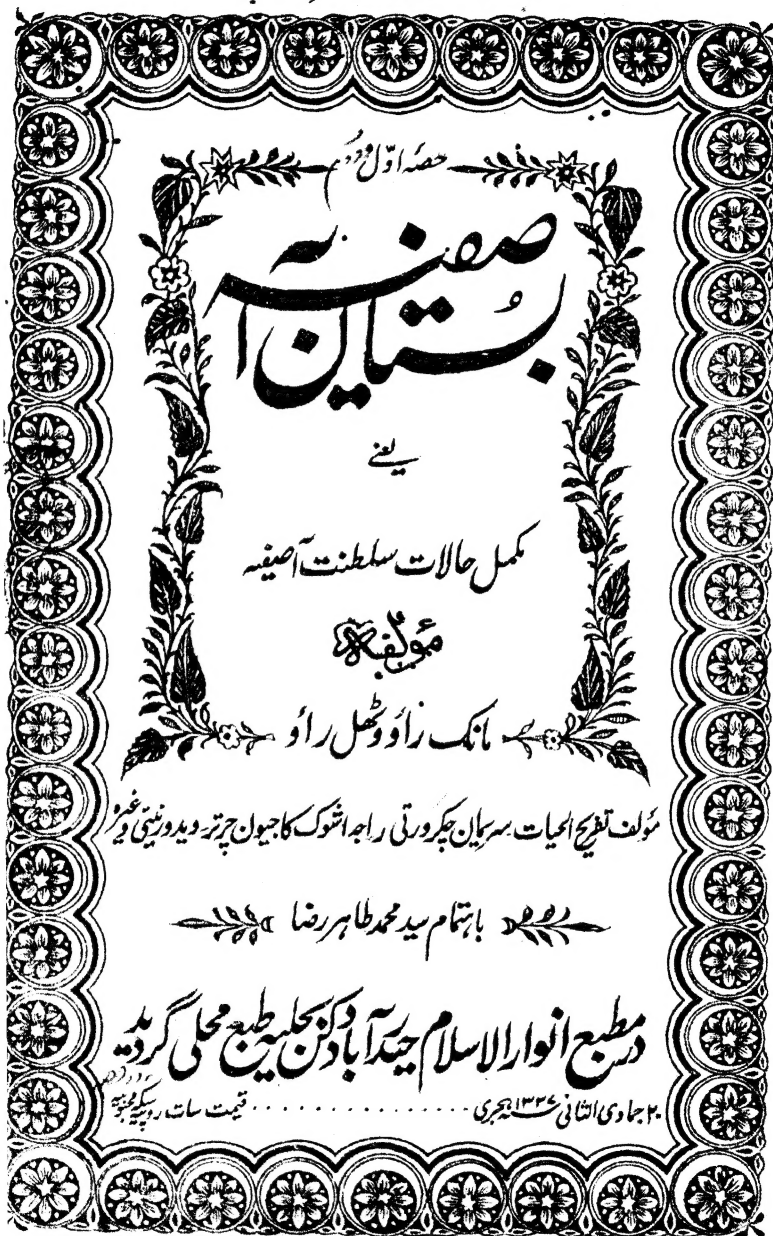 حصۂ اوّل و دوم
بُستانِ آصفیہ
یعنے
مکمل حالات سلطنت آصفیہ
مؤلفہ
مانک راؤ وٹھل راؤ
مؤلف تفریح الحیات سریمان چکرورتی راجہ اشوک کا جیون چرتر ویدور نیتی وغیرہ
باہتمام سید محمد طاہر رضا
در مطبع انوار الاسلام حیدرآباد دکن بحلیہ طبع محلی گردید
۲۰ جمادی الثانی ۱۳۲۷ سنہ ہجری . . . . . . . . . . . . . . . قیمت سات روپیہ سکہ محبوبیہ